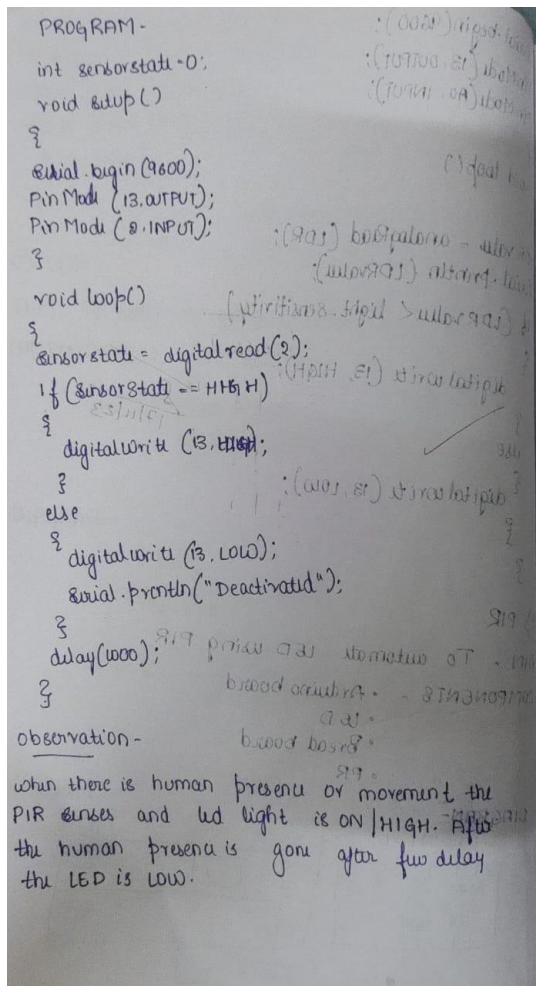 PROGRAM-
int sensorstate=0;
void setup()
{
serial.begin(9600);
PinMode (13,OUTPUT);
PinMode (2,INPUT);
}
void loop()
{
sensorstate = digitalread(2);
if (sensorstate == HIGH)
{
digitalwrite (13, HIGH);
}
else
{
digitalwrite (13, LOW);
serial.println("Deactivated");
}
delay(1000);
}
observation-
when there is human presence or movement the
PIR senses and led light is ON/HIGH. After
the human presence is gone after few delay
the LED is LOW.